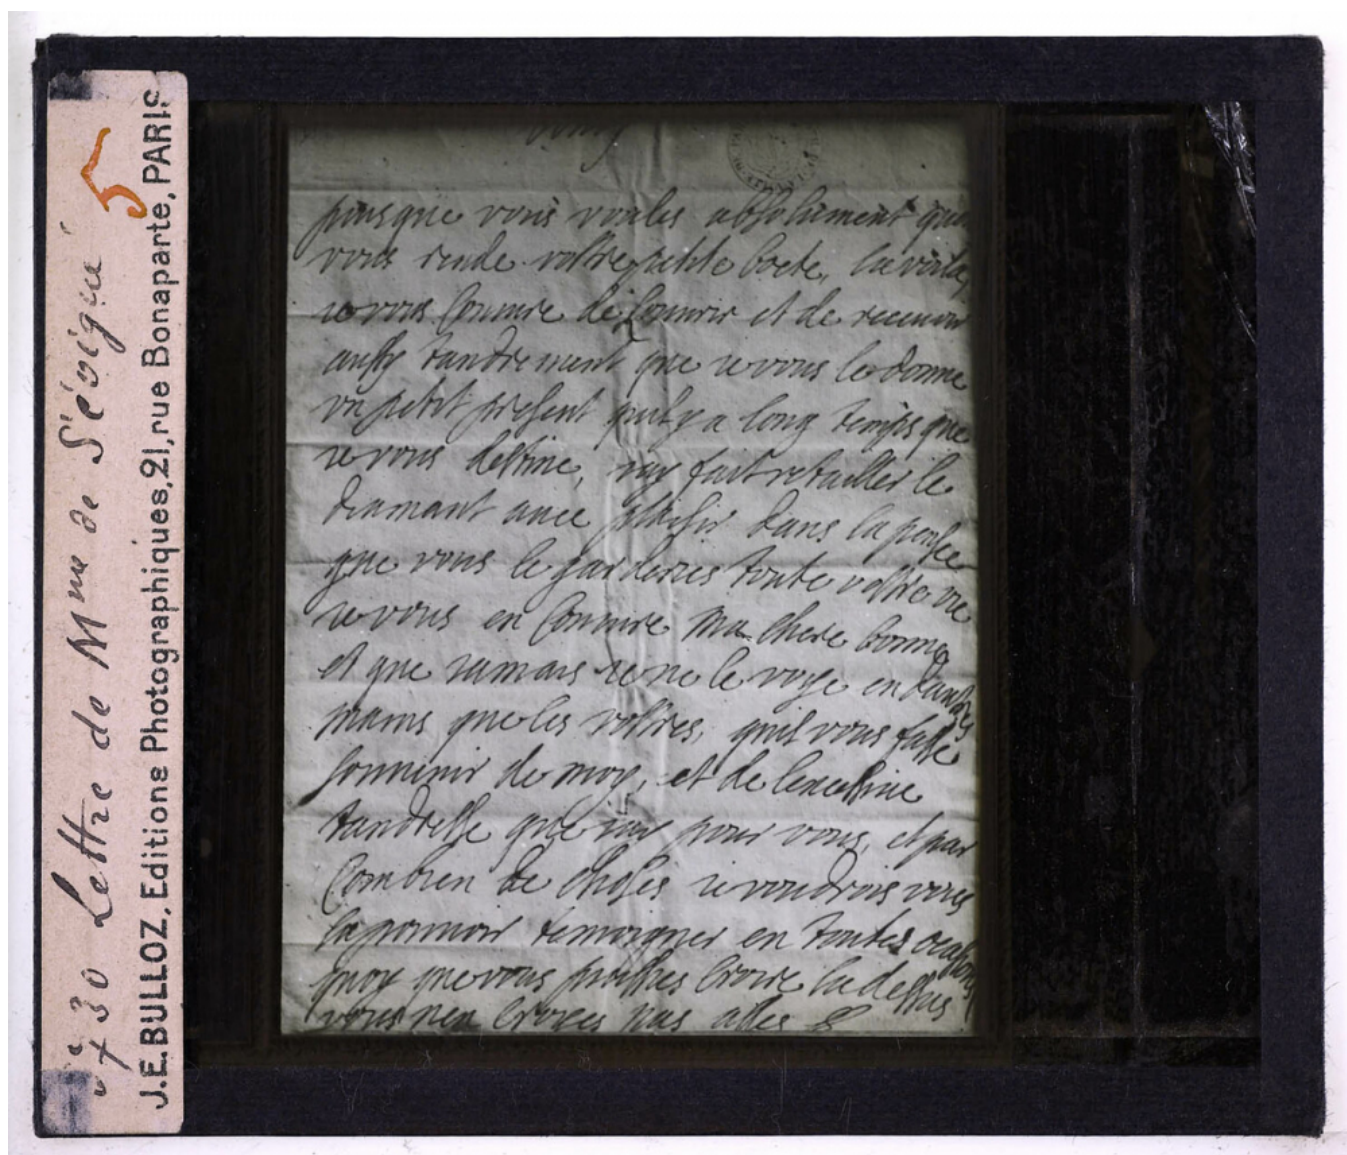 30 Lettre de Mme de Sévigné
5
J.E. BULLOZ, Editions Photographiques, 21, rue Bonaparte, PARIS
puisque vous voules absolument que
vous rende vostre petite boete, la voila,
ie vous coniure de conurir et de receuoir
aussy tandrement que ie vous le donne
vn petit present quil y a long temps que
ie vous destine, iay fait retailler le
diamant auec plaisir dans la pensée
que vous le garderies toute vostre vie
ie vous en coniure ma chere bonne
et que iamais ie ne le voye en dautres
mains que les vostres, quil vous fasse
souuenir de moy, et de lexcessiue
tandresse que iay pour vous, et par
combien de choses ie voudrois vous
la pouuoir temoigner en toutes ocasions
quoy que vous puissies croire la dessus
vous nen croyes pas asses